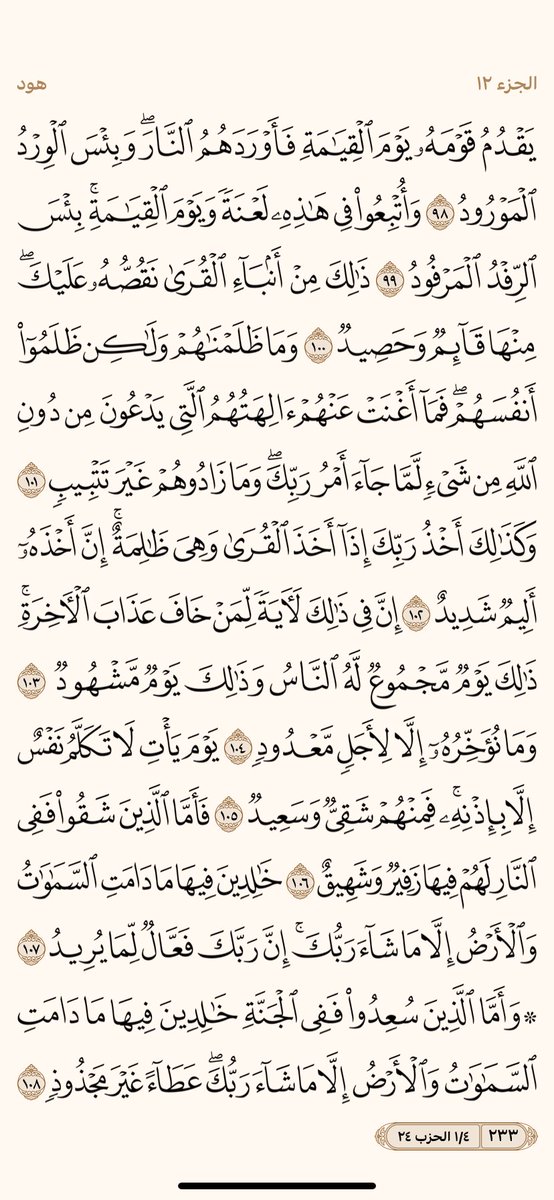 الجزء ١٢
هود
يَقْدُمُ قَوْمَهُۥ يَوْمَ ٱلْقِيَٰمَةِ فَأَوْرَدَهُمُ ٱلنَّارَۖ وَبِئْسَ ٱلْوِرْدُ
ٱلْمَوْرُودُ ٩٨ وَأُتْبِعُوا۟ فِى هَٰذِهِۦ لَعْنَةً وَيَوْمَ ٱلْقِيَٰمَةِۚ بِئْسَ
ٱلرِّفْدُ ٱلْمَرْفُودُ ٩٩ ذَٰلِكَ مِنْ أَنۢبَآءِ ٱلْقُرَىٰ نَقُصُّهُۥ عَلَيْكَۖ
مِنْهَا قَآئِمٌ وَحَصِيدٌ ١٠٠ وَمَا ظَلَمْنَٰهُمْ وَلَٰكِن ظَلَمُوٓا۟
أَنفُسَهُمْۖ فَمَآ أَغْنَتْ عَنْهُمْ ءَالِهَتُهُمُ ٱلَّتِى يَدْعُونَ مِن دُونِ
ٱللَّهِ مِن شَىْءٍ لَّمَّا جَآءَ أَمْرُ رَبِّكَۖ وَمَا زَادُوهُمْ غَيْرَ تَتْبِيبٍ ١٠١
وَكَذَٰلِكَ أَخْذُ رَبِّكَ إِذَآ أَخَذَ ٱلْقُرَىٰ وَهِىَ ظَٰلِمَةٌۚ إِنَّ أَخْذَهُۥٓ
أَلِيمٌ شَدِيدٌ ١٠٢ إِنَّ فِى ذَٰلِكَ لَءَايَةً لِّمَنْ خَافَ عَذَابَ ٱلْءَاخِرَةِۚ
ذَٰلِكَ يَوْمٌ مَّجْمُوعٌ لَّهُ ٱلنَّاسُ وَذَٰلِكَ يَوْمٌ مَّشْهُودٌ ١٠٣
وَمَا نُؤَخِّرُهُۥٓ إِلَّا لِأَجَلٍ مَّعْدُودٍ ١٠٤ يَوْمَ يَأْتِ لَا تَكَلَّمُ نَفْسٌ
إِلَّا بِإِذْنِهِۦۚ فَمِنْهُمْ شَقِىٌّ وَسَعِيدٌ ١٠٥ فَأَمَّا ٱلَّذِينَ شَقُوا۟ فَفِى
ٱلنَّارِ لَهُمْ فِيهَا زَفِيرٌ وَشَهِيقٌ ١٠٦ خَٰلِدِينَ فِيهَا مَا دَامَتِ ٱلسَّمَٰوَٰتُ
وَٱلْأَرْضُ إِلَّا مَا شَآءَ رَبُّكَۚ إِنَّ رَبَّكَ فَعَّالٌ لِّمَا يُرِيدُ ١٠٧
* وَأَمَّا ٱلَّذِينَ سُعِدُوا۟ فَفِى ٱلْجَنَّةِ خَٰلِدِينَ فِيهَا مَا دَامَتِ
ٱلسَّمَٰوَٰتُ وَٱلْأَرْضُ إِلَّا مَا شَآءَ رَبُّكَۖ عَطَآءً غَيْرَ مَجْذُوذٍ ١٠٨
٢٣٣ ١/٤ الحزب ٢٤